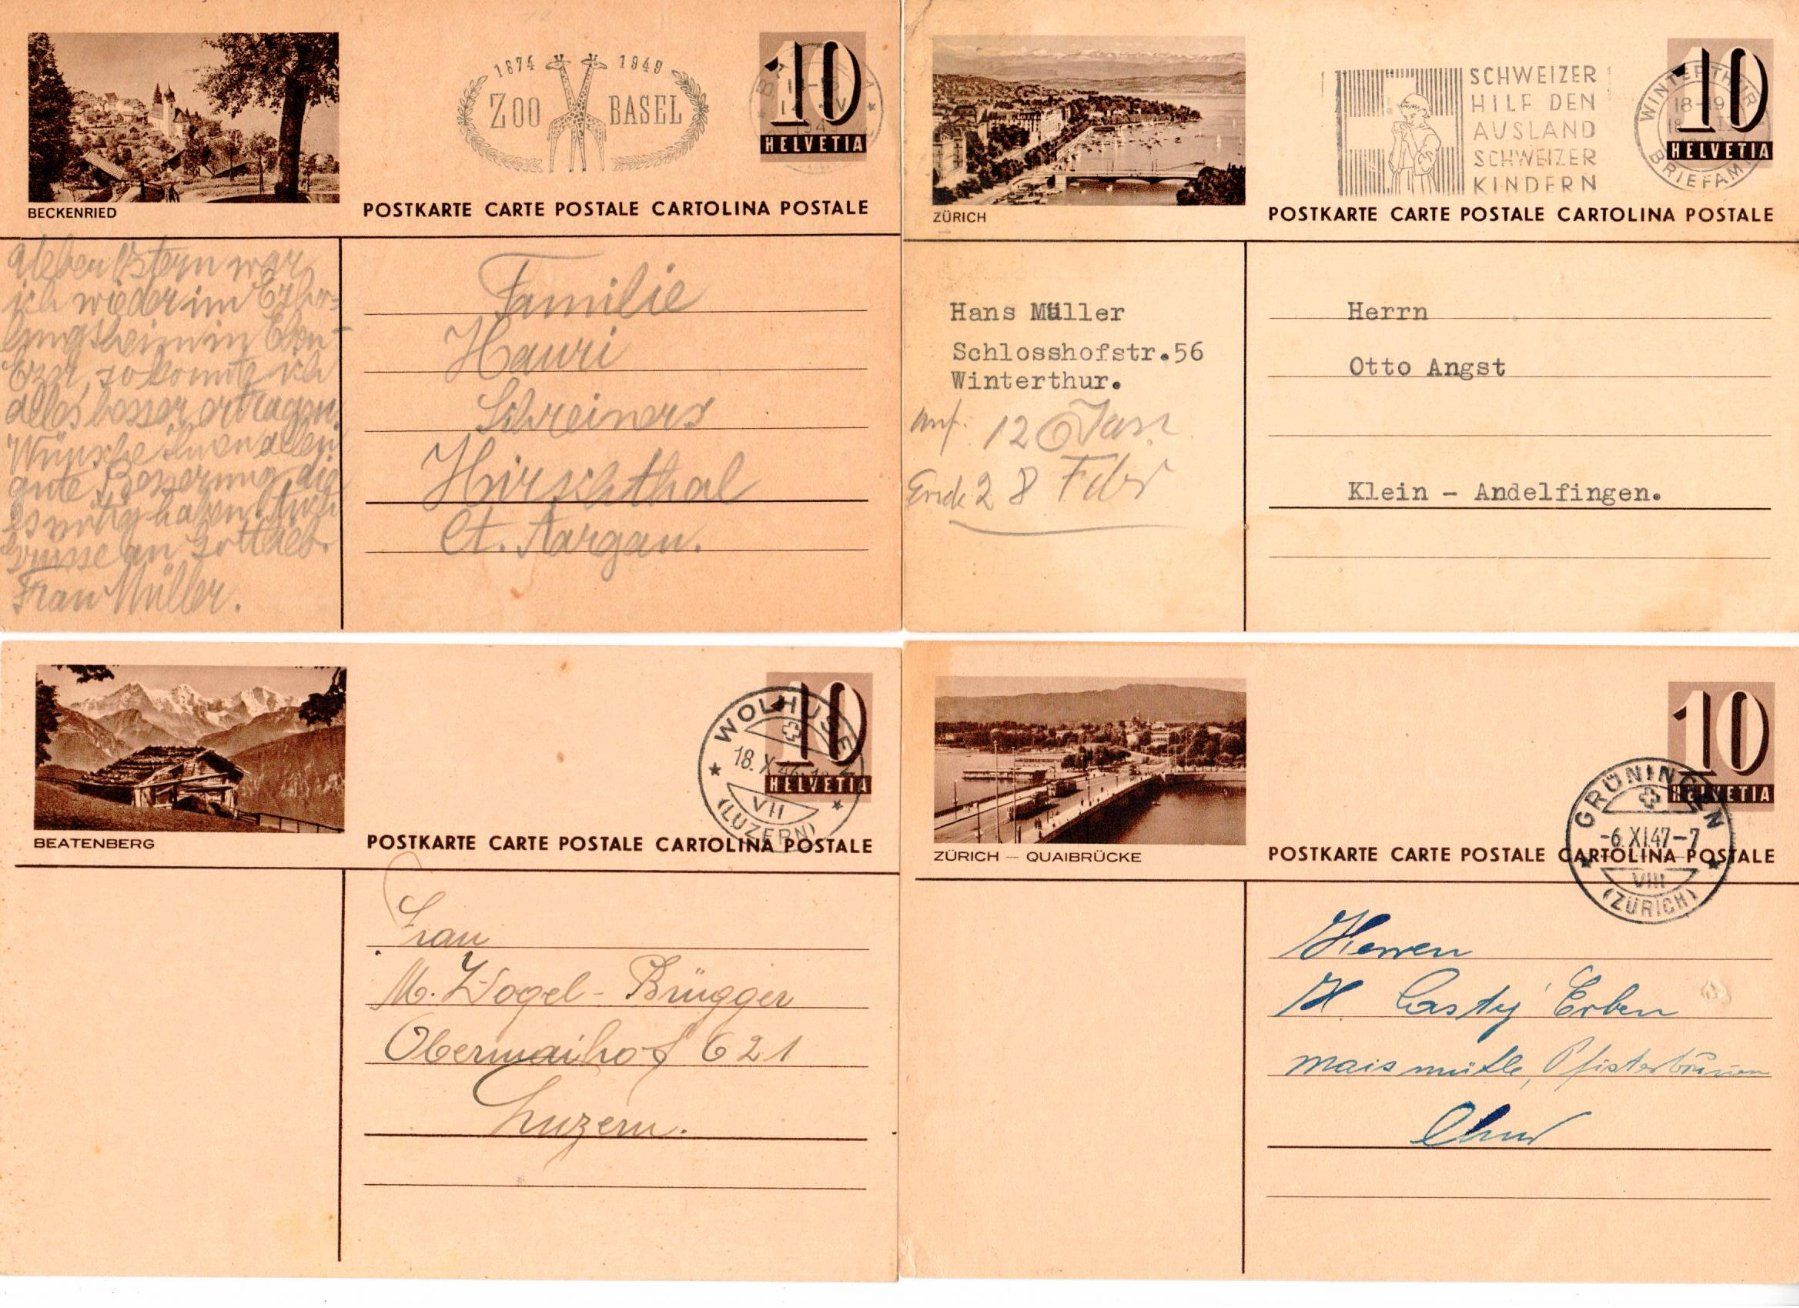 BECKENRIED
1874 1949
ZOO BASEL
10
HELVETIA
POSTKARTE CARTE POSTALE CARTOLINA POSTALE
Ueber Ostern war
ich wieder im Erho-
lungsheim in
so konnte ich
alles besser ertragen.
Wünsche Ihnen allen
gute Besserung die
es nötig haben. Auch
Grüsse an Gottlieb.
Frau Müller.
Familie
Hauri
Schreiners
Hirschthal
Ct. Aargau.
ZÜRICH
SCHWEIZER
HILF DEN
AUSLAND
SCHWEIZER
KINDERN
WINTERTHUR
18-19
BRIEFAM
10
HELVETIA
POSTKARTE CARTE POSTALE CARTOLINA POSTALE
Hans Müller
Schlosshofstr.56
Winterthur.
Anf. 12 Jan
Ende 28 Febr
Herrn
Otto Angst
Klein - Andelfingen.
BEATENBERG
10
HELVETIA
WOLHUSEN
18. X
VII
(LUZERN)
POSTKARTE CARTE POSTALE CARTOLINA POSTALE
Frau
M. Vogel - Brügger
Obermaihof 621
Luzern.
ZÜRICH – QUAIBRÜCKE
10
HELVETIA
GRÜNINGEN
-6.XI.47-7
VIII
(ZÜRICH)
POSTKARTE CARTE POSTALE CARTOLINA POSTALE
Herren
H. Casty' Erben
maismühle, Pfisterbrunnen
Chur